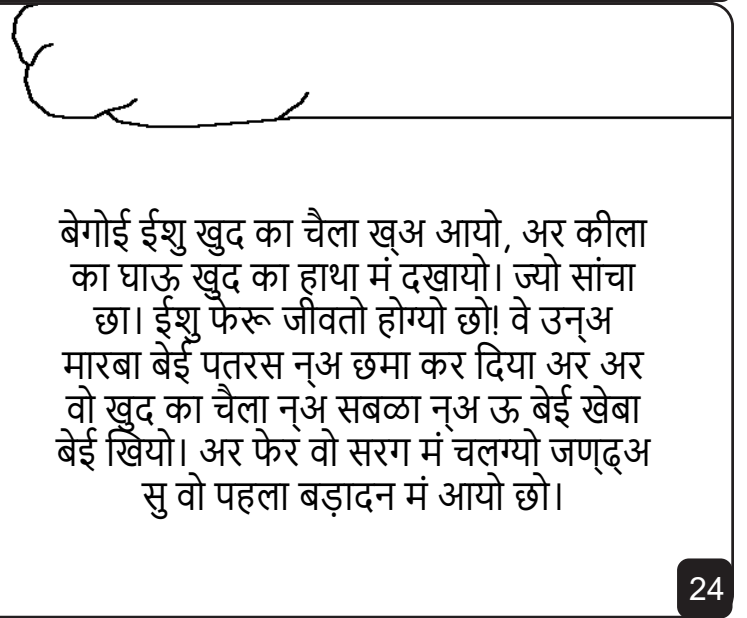 बेगोई ईशु खुद का चैला ख्अ आयो, अर कीला
का घाऊ खुद का हाथा मं दखायो। ज्यो सांचा
छा। ईशु फेरू जीवतो होग्यो छो! वे उन्अ
मारबा बेई पतरस न्अ छमा कर दिया अर अर
वो खुद का चैला न्अ सबळा न्अ ऊ बेई खेबा
बेई खियो। अर फेर वो सरग मं चलग्यो जण्ढ्अ
सु वो पहला बड़ादन मं आयो छो।
24